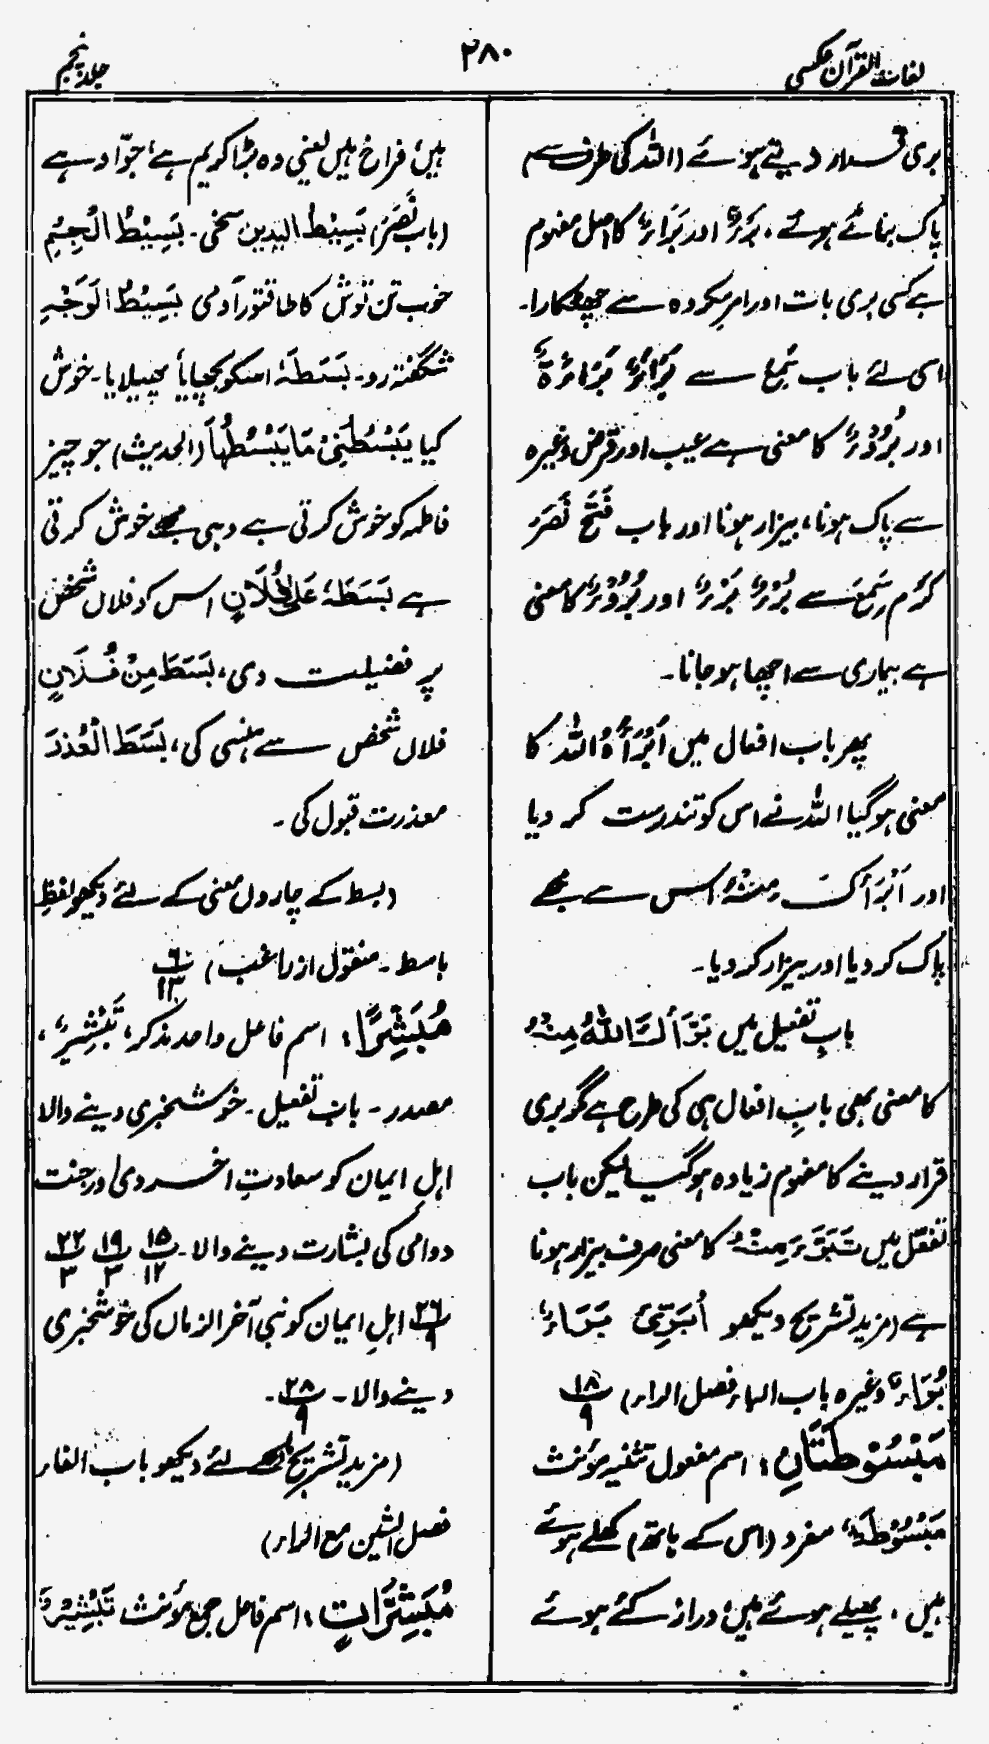 لغات القرآن عکسی
۲۸۰
جلد پنجم
بری قرار دیتے ہوئے (اللہ کی طرف سے)
پاک بنائے ہوئے، بَرْءٌ اور بَرَاءٌ کا اصل مفہوم
ہے کسی بری بات اور امر مکروہ سے چھٹکارا۔
اسی لئے باب سَمِعَ سے بَرَاءٌ بَرَاءَةٌ
اور بُرُوْءٌ کا معنی ہے عیب اور قرض وغیرہ
سے پاک ہونا، بیزار ہونا اور باب فَتَحَ نَصَرَ
کَرُمَ سَمِعَ سے بُرْءٌ بَرْءٌ اور بُرُوْءٌ کا معنی
ہے بیماری سے اچھا ہو جانا۔
پھر باب افعال میں اَبْرَأَہُ اللہُ کا
معنی ہو گیا اللہ نے اس کو تندرست کر دیا
اور اَبْرَأَکَ مِنْہُ اس سے تجھے
پاک کر دیا اور بیزار کر دیا۔
بابِ تفعیل میں بَرَّأَکَ اللہُ مِنْہُ
کا معنی بھی بابِ افعال ہی کی طرح ہے گو بری
قرار دینے کا مفہوم زیادہ ہو گیا لیکن باب
تفعّل میں تَبَرَّءَ مِنْہُ کا معنی صرف بیزار ہونا
ہے (مزید تشریح دیکھو اُبَرِّئُ بَرَاءٌ
بُرَاءٌ وغیرہ باب الباء فصل الراء) ۱۸ ب ۹
مَبْسُوْطَتَانِ؛ اسم مفعول تثنیہ مؤنث
مَبْسُوْطَۃٌ مفرد (اس کے ہاتھ) کھلے ہوئے
ہیں، پھیلے ہوئے ہیں، دراز کئے ہوئے
ہیں، فراخ ہیں یعنی وہ بڑا کریم ہے، جوّاد ہے
(باب نَصَرَ) بَسِیْطُ الیدین سخی۔ بَسِیْطُ الْجِسْمِ
خوب تن توش کا طاقتور آدمی بَسِیْطُ الْوَجْہِ
شگفتہ رو۔ بَسَطَہٗ اسکو بچھایا پھیلایا۔ خوش
کیا یَبْسُطُنِیْ مَا یَبْسُطُہَا (الحدیث) جو چیز
فاطمہ کو خوش کرتی ہے وہی مجھے خوش کرتی
ہے بَسَطَہٗ عَلٰی فُلَانٍ اس کو فلاں شخص
پر فضیلت دی، بَسَطَ مِنْ فُلَانٍ
فلاں شخص سے ہنسی کی، بَسَطَ الْعُذْرَ
معذرت قبول کی۔
(بسط کے چاروں معنی کے لئے دیکھو لفظِ
باسط۔ منقول از راغب) ۶ ب ۱۳
مُبَشِّرًا؛ اسم فاعل واحد مذکر، تَبْشِیْرٌ،
مصدر۔ بابِ تفعیل۔ خوشخبری دینے والا
اہلِ ایمان کو سعادتِ اخروی اور جنت
دوامی کی بشارت دینے والا۔ ۱۵ ب ۱۲ ۱۹ ب ۳ ۲۲ ب ۳
۲۶ ب ۹ اہلِ ایمان کو نبی آخر الزماں کی خوشخبری
دینے والا۔ ۲۸ ب ۹۔
(مزید تشریح کے لئے دیکھو باب الفاء
فصل الشین مع الراء)
مُبَشِّرَاتٍ؛ اسم فاعل جمع مؤنث تَبْشِیْرٌ